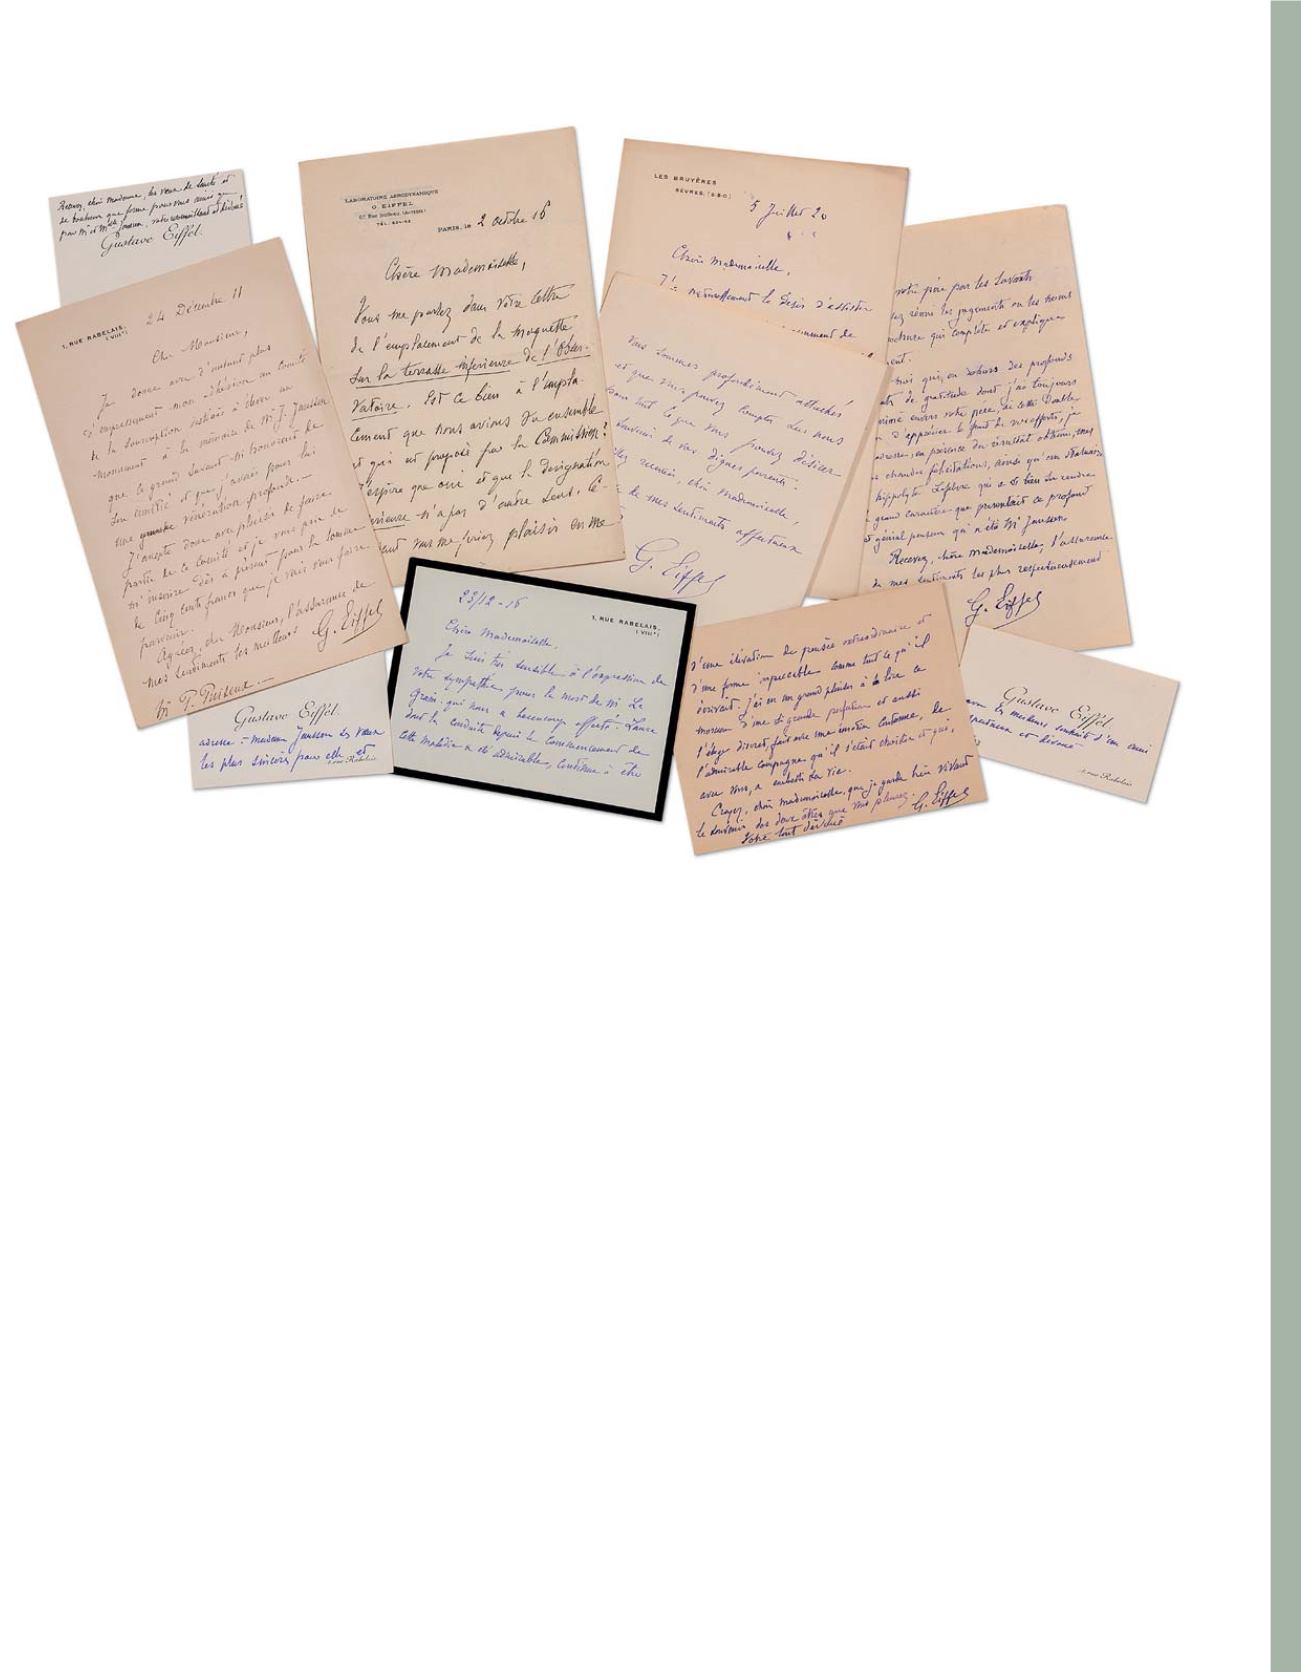 Recevez, chère Madame, les vœux de santé et
de bonheur que forme pour vous ainsi que
pour Mr et Mlle Janssen, votre reconnaissant et dévoué
Gustave Eiffel.
1, RUE RABELAIS.
(VIIIe)
24 Décembre 11
Cher Monsieur,
Je donne avec d'autant plus
d'empressement mon adhésion au Comité
de la souscription destinée à élever un
monument à la mémoire de Mr J. Janssen
que ce grand savant m'honorait de
son amitié et que j'avais pour lui
une vénération profonde.
J'accepte donc avec plaisir de faire
partie de ce Comité et je vous prie de
m'inscrire dès à présent pour la somme
de Cinq cents francs que je vais vous faire
parvenir.
Agréez, cher Monsieur, l'assurance de
mes sentiments les meilleurs
G. Eiffel
Mr P. Puiseux
LABORATOIRE AERODYNAMIQUE
G. EIFFEL
67 Rue Boileau (AUTEUIL)
PARIS, le 2 octobre 16
Chère Mademoiselle,
Vous me parlez dans votre lettre
de l'emplacement de la maquette
sur la terrasse inférieure de l'Obser-
vatoire. Est ce bien à l'empla-
cement que nous avions vu ensemble
et qui est proposé par la Commission?
J'espère que oui et que la désignation
inférieure n'a pas d'autre sens. Ce-
vous me feriez plaisir en me
LES BRUYÈRES
SÈVRES. (S.&O.)
5 Juillet 20
Chère Mademoiselle,
naturellement le désir d'assister
Vous sommes profondément attachés
et que vous pouvez compter sur nous
pour tout ce que vous pouvez désirer
souvenir de vos dignes parents.
recevoir, chère Mademoiselle,
de mes sentiments affectueux
G. Eiffel
votre père par les savants
réuni les jugements ou les
qui complète et explique
moi qui, en dehors des profonds
de gratitude dont j'ai toujours
envers votre père, ai cette double
d'apprécier le fruit de vos efforts, je
adresse, en présence du résultat obtenu, mes
chaudes félicitations, ainsi qu'au statuaire
Hippolyte Lefebvre qui a si bien su rendre
grand caractère que présentait ce profond
et génial penseur qu'a été Mr Janssen
Recevez, chère Mademoiselle, l'assurance
de mes sentiments les plus respectueusement
G. Eiffel
Gustave Eiffel.
adresse à Madame Janssen les vœux
les plus sincères pour elle et
1, rue Rabelais
23/12 - 16
1, RUE RABELAIS.
(VIIIe)
Chère Mademoiselle,
Je suis très sensible à l'expression de
votre sympathie pour la mort de Mr Le
Grain qui nous a beaucoup affecté. Laure
dont la conduite depuis le commencement de
cette maladie a été admirable, continue à être
d'une élévation de pensée extraordinaire et
d'une forme impeccable comme tout ce qu'il
écrivait. J'ai eu un grand plaisir à lire ce
morceau d'une si grande perfection et aussi
l'éloge discret, fait avec une émotion contenue, de
l'admirable compagne qu'il s'était choisie et qui,
avec vous, a embelli sa vie.
Croyez, chère Mademoiselle, que je garde bien vivant
le souvenir des deux êtres que vous pleurez.
Votre tout dévoué
G. Eiffel
Gustave Eiffel
avec les meilleurs souhaits d'un ami
et dévoué
1, rue Rabelais